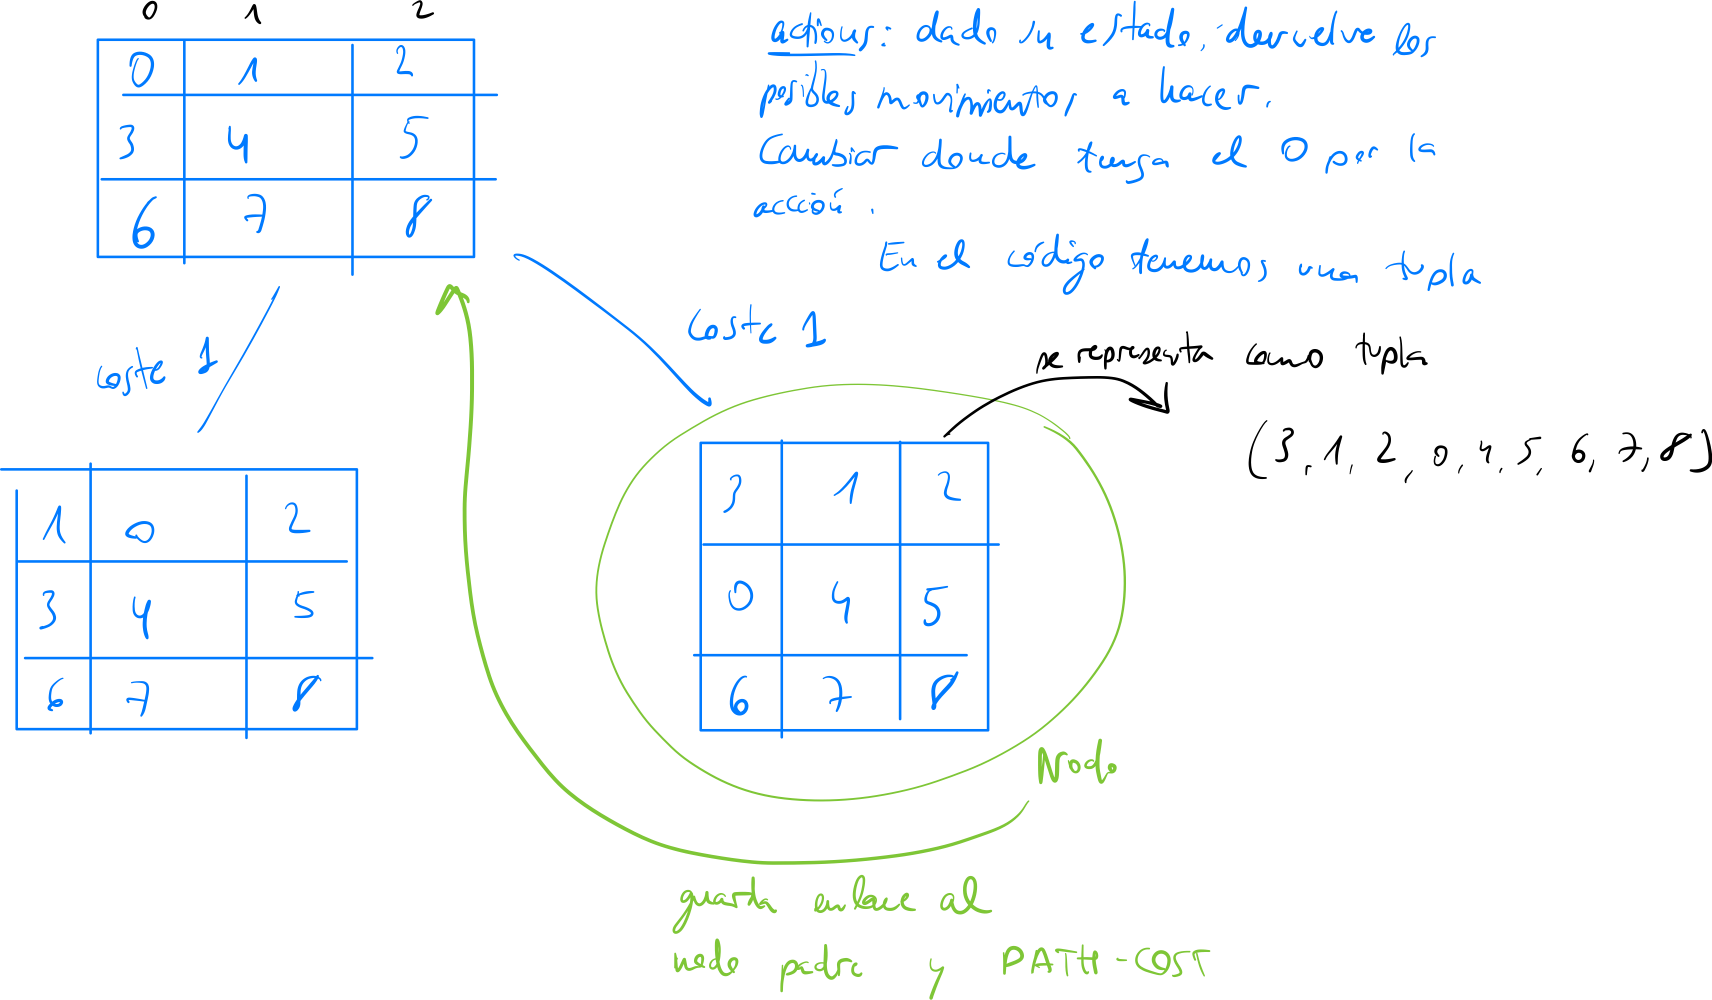 0 1 2
0 1 2
3 4 5
6 7 8
actions: dado un estado, devuelve los
posibles movimientos a hacer.
Cambiar donde tenga el 0 por la
accción.
En el código tenemos una tupla
coste 1
coste 1
se representa como tupla
(3, 1, 2, 0, 4, 5, 6, 7, 8)
1 0 2
3 4 5
6 7 8
3 1 2
0 4 5
6 7 8
Nodo
guarda enlace al
nodo padre y PATH-COST